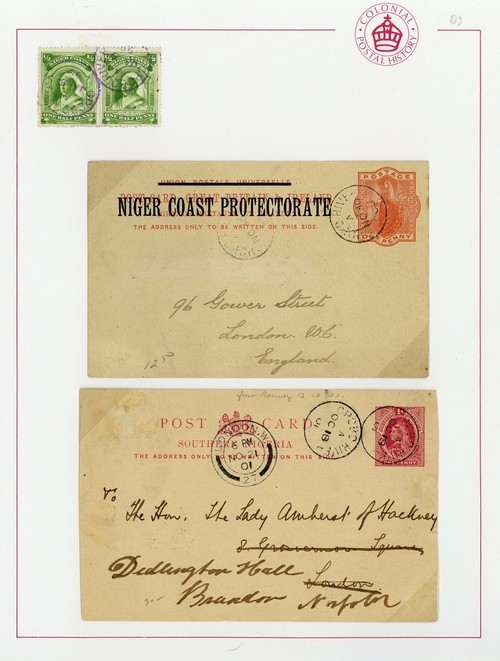 COLONIAL
POSTAL HISTORY
D9
½ NIGER COAST ½
ONE HALF PENNY
½ ½
ONE HALF PENNY
UNION POSTALE UNIVERSELLE
POST CARD GREAT BRITAIN & IRELAND
NIGER COAST PROTECTORATE
THE ADDRESS ONLY TO BE WRITTEN ON THIS SIDE.
POSTAGE
ONE PENNY
96 Gower Street
London. W.C.
England.
POST CARD
SOUTHERN NIGERIA
THE ADDRESS ONLY TO BE WRITTEN ON THIS SIDE.
ONE PENNY
LONDON.W.
NO 21
01
27
OPOBO RIVER
A
OC 19
01
To
The Hon. The Lady Amherst of Hackney
8. Grosvenor Square
Didlington Hall London
Brandon Norfolk